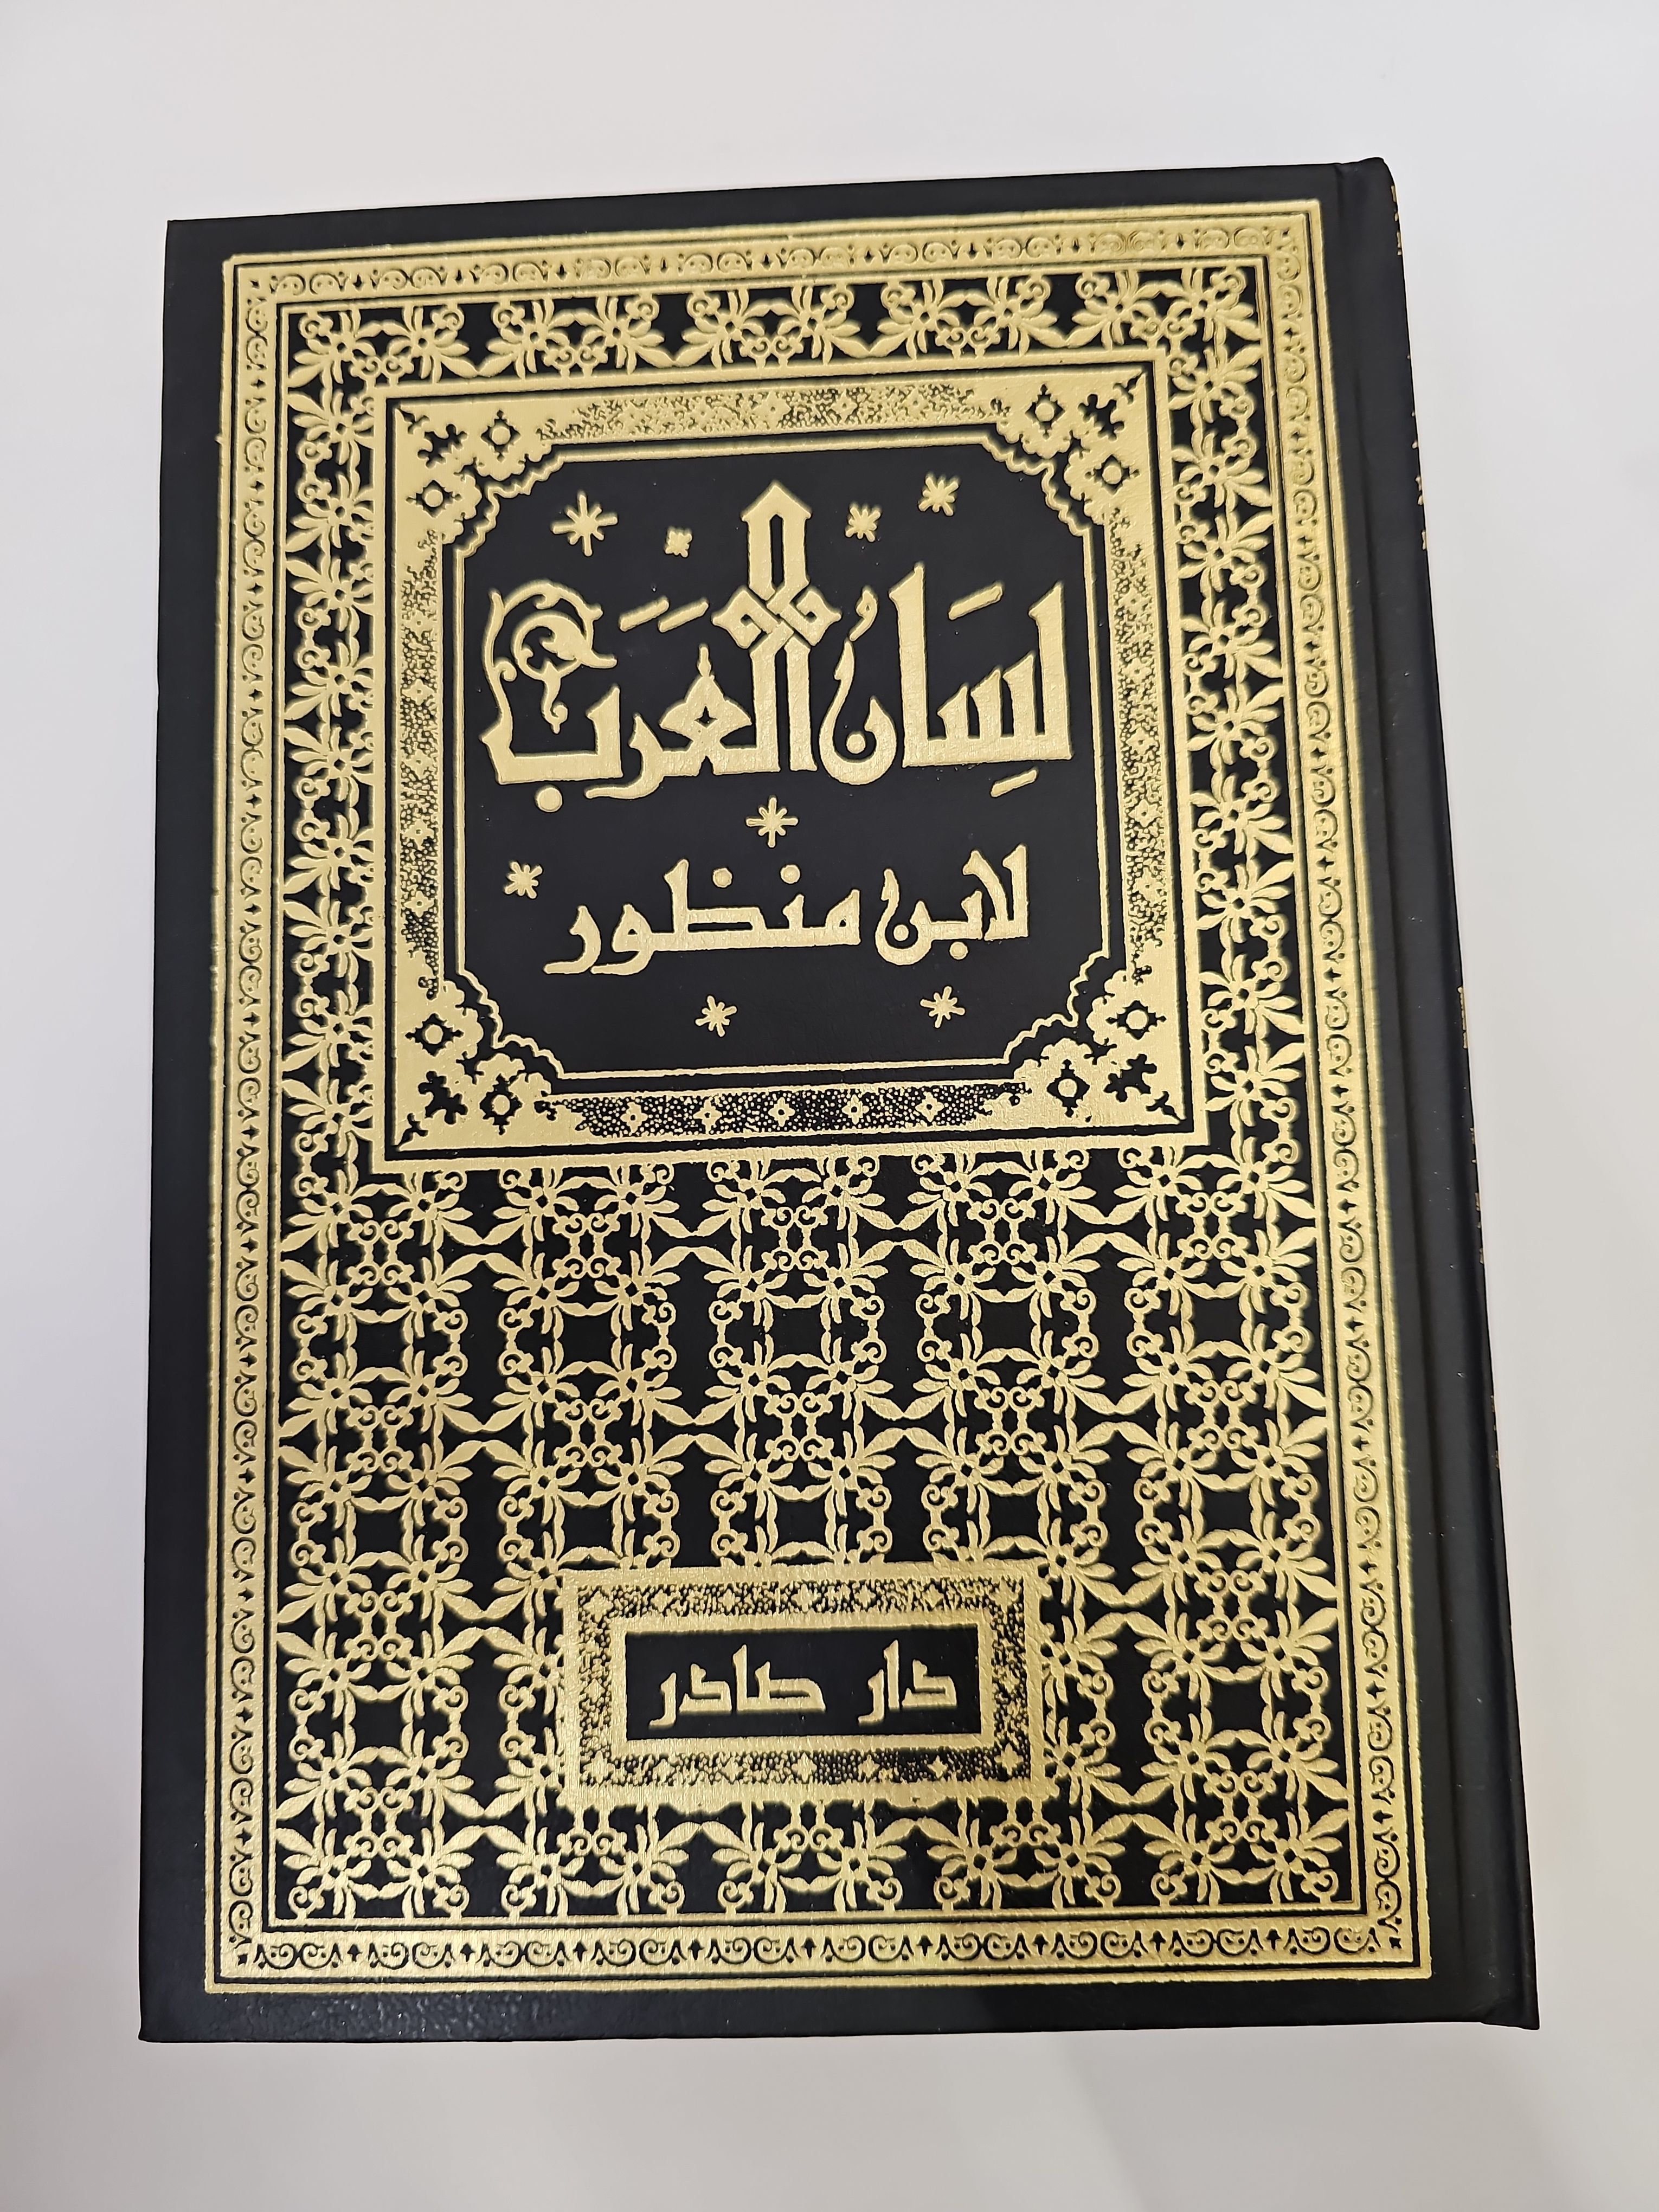 لِسَانُ العَرَب
لابن منظور
دار صادر